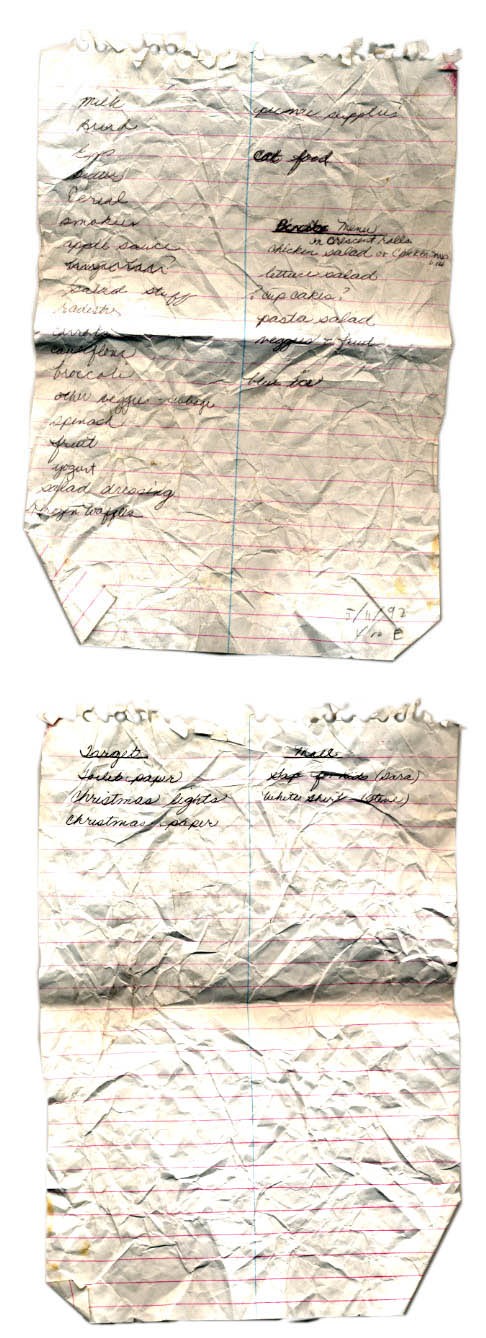 Milk
Bread
Eggs
Cereal
smokies
apple sauce
salad stuff
radishes
carrots
cauliflour
broccoli
other veggies
spinach
fruit
yogurt
salad dressing
Waffles
picnic supplies
cat food
Menu
on crescent rolls
chicken salad or
lettuce salad
? cup cakes?
pasta salad
veggies + fruit
blue ice
5/11/92
Target
toilet paper
Christmas lights
Christmas paper
Mall
slip (Sara)
White shirt (Steve)